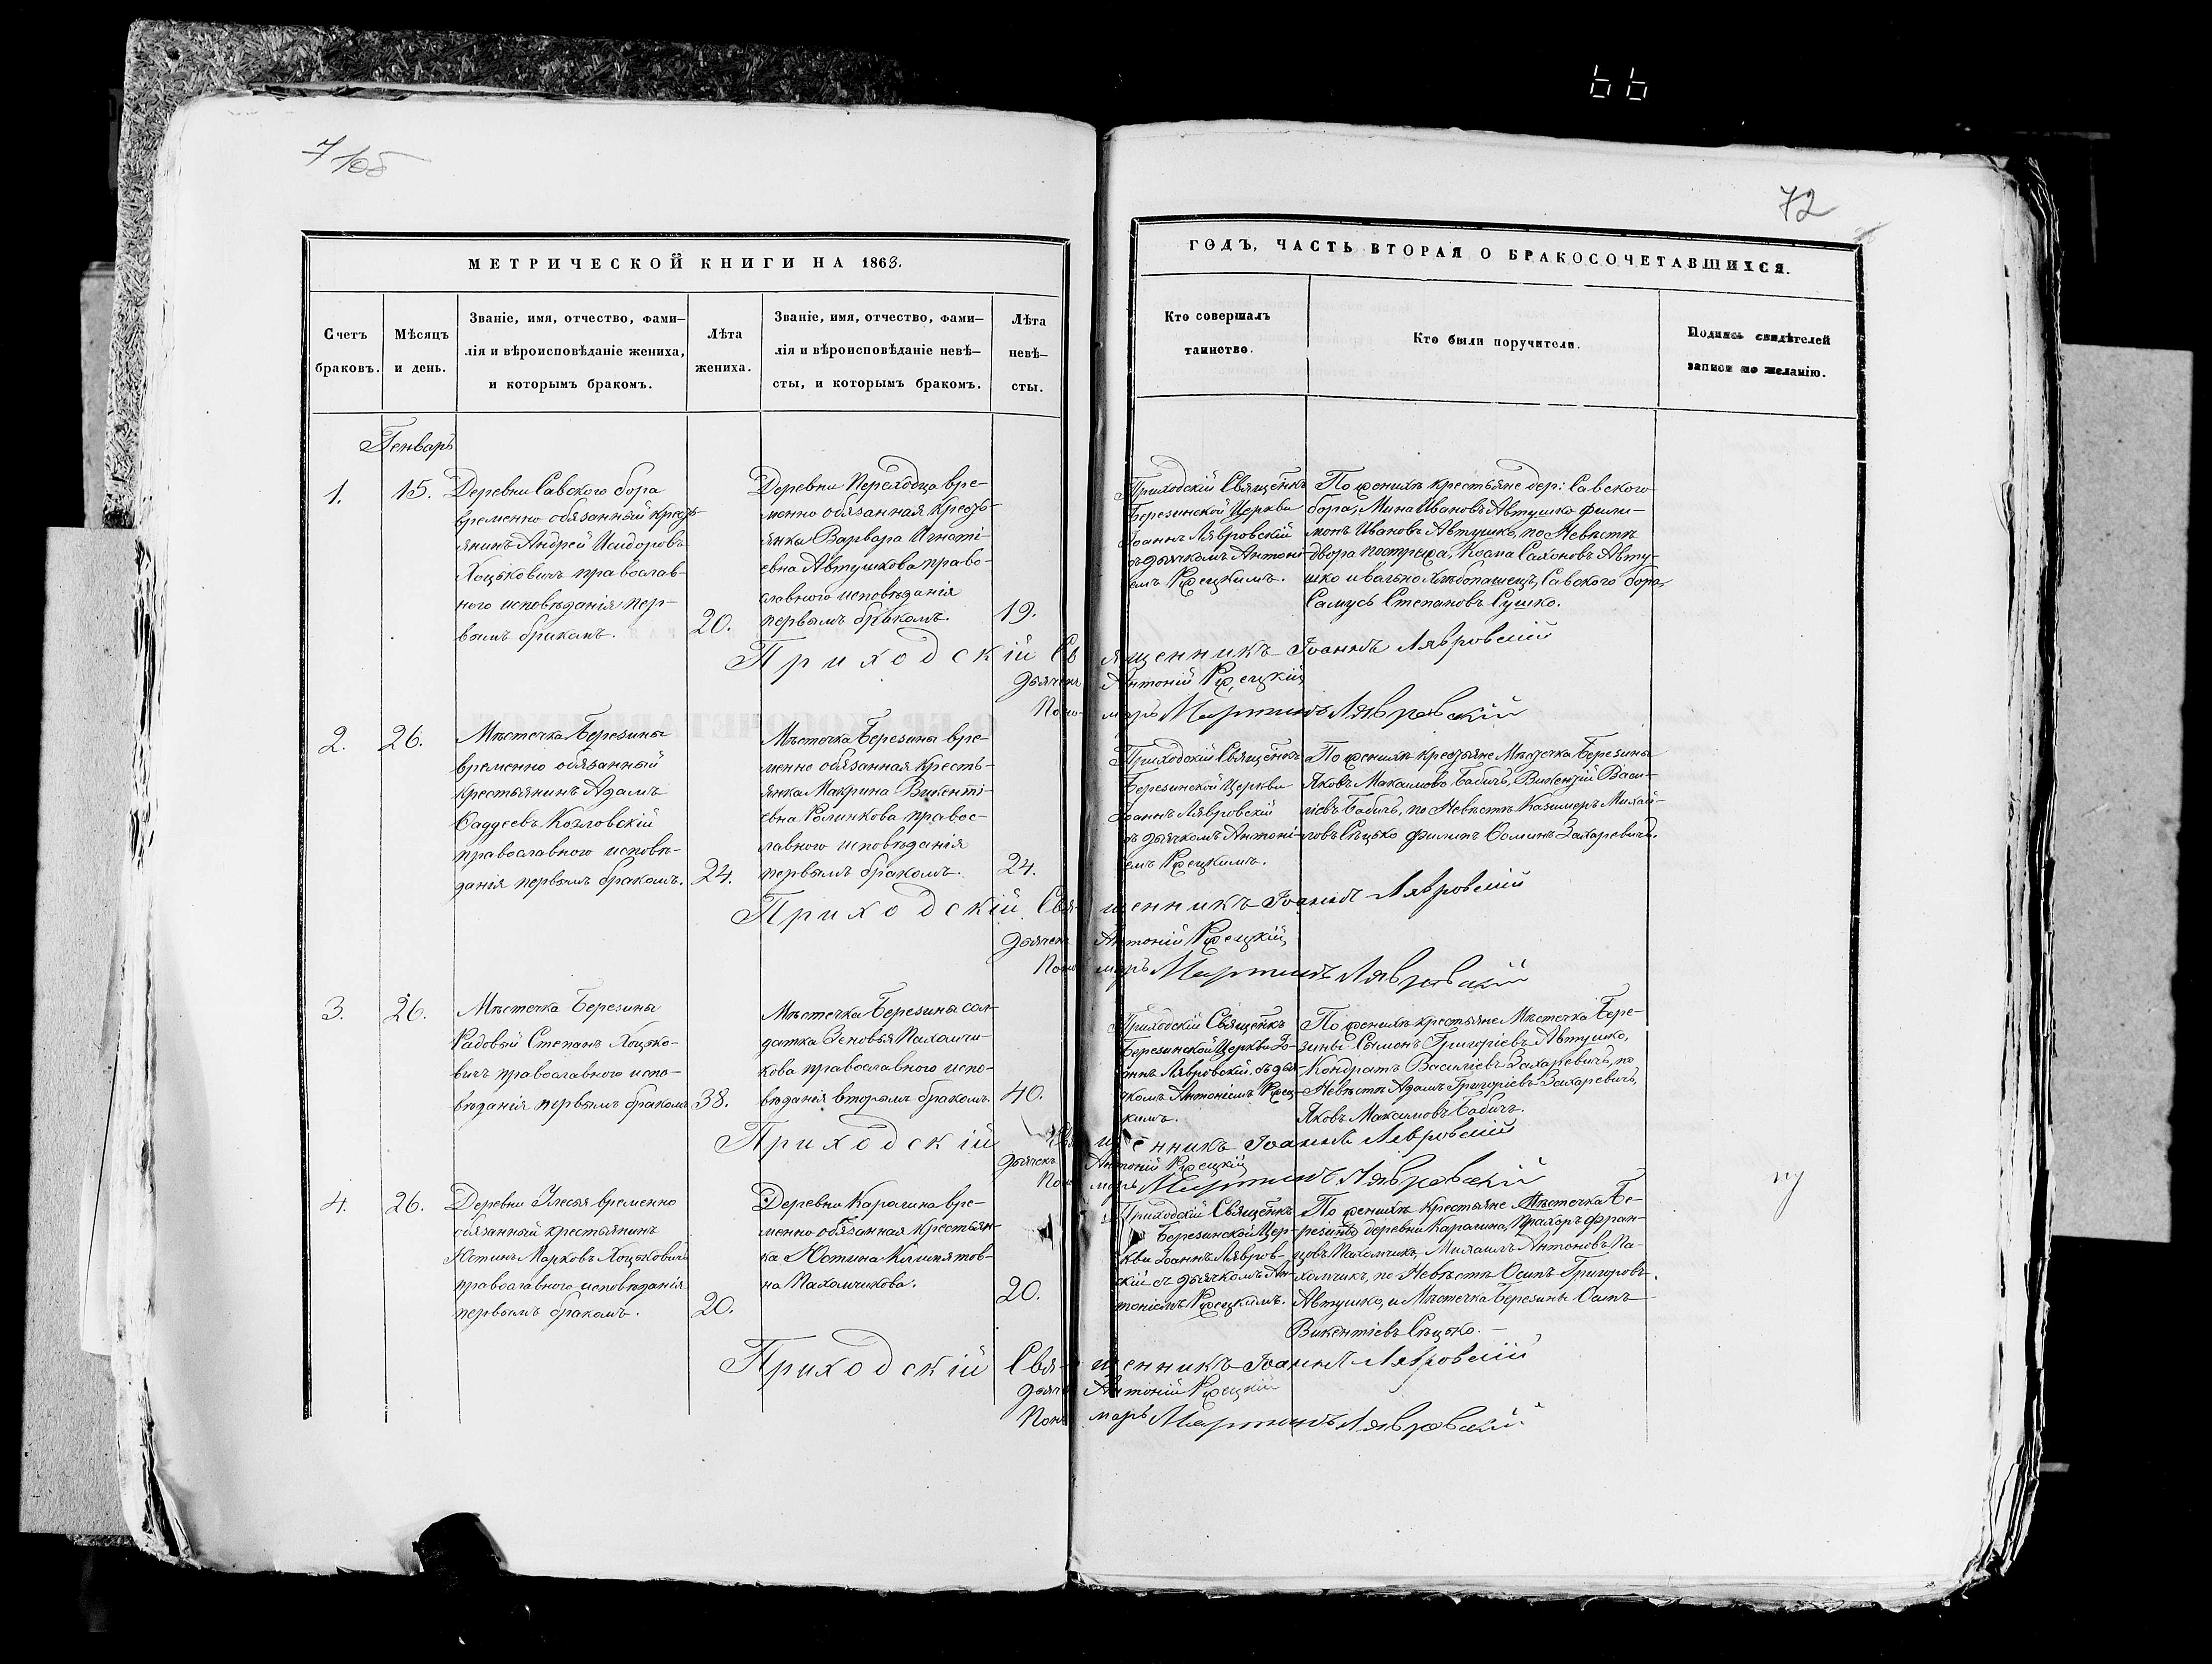 66
7
72
МЕТРИЧЕСКОЙ КНИГИ НА 1863.
Счетъ
браковъ.
Мѣсяцъ
и день.
Званіе, имя, отчество, фами–
лія и вѣроисповѣданіе жениха,
и которымъ бракомъ.
Лѣта
жениха.
Званіе, имя, отчество, фами–
лія и вѣроисповѣданіе невѣ–
сты, и которымъ бракомъ.
Лѣта
невѣ–
сты.
ГОДЪ, ЧАСТЬ ВТОРАЯ О БРАКОСОЧЕТАВШИХСЯ.
Кто совершалъ
таинство.
Кто были поручители.
Подпись свидѣтелей
записи по желанію.
Генварь
1.
15.
Деревни Савского бора
временно обязанный кресть-
янинъ Андрей Исидоровъ
Хоцьковичъ православ-
ного исповѣданія пер-
вымъ бракомъ.
20.
Деревни Переходца вре-
менно обязанная кресть-
янка Варвара Игнаті-
евна Автушкова право-
славного исповѣданія
первымъ бракомъ.
19.
Приходскій Священикъ
Березинской Церкви
Іоаннъ Лявровскій
съ дьячкомъ Антоні-
емъ
По женихѣ крестьяне дер: Савского
бора, Мина Ивановъ Автушко фили-
монъ Ивановъ Автушко, по Невѣстѣ
двора Косма Автушко
и вольно хлѣбопашецъ, Савского бора,
Самусь Степановъ Сушко.
Приходскій Священникъ Іоаннъ Лявровскій
Дьячекъ Антоній
Пономарь Мартинъ Лявровскій
2.
26.
Мѣстечка Березины
временно обязанный
крестьянинъ Адамъ
Фаддеевъ Козловскій
православного исповѣ-
данія первымъ бракомъ.
24.
Мѣстечка Березины вре-
менно обязанная кресть-
янка Макрина Викенті-
евна Ролинкова правос-
лавного исповѣданія
первымъ бракомъ.
24.
Приходскій Священикъ
Березинской Церкви
Іоаннъ Лявровскій
съ дьячкомъ Антоні-
емъ
По женихѣ крестьяне Мѣстечка Березины
Яковъ Макаимовъ Бабичъ, Викентій Васи-
ліевъ Бабичъ, по Невѣстѣ Казимеръ Михай-
ловъ Сѣцько филипъ Фоминъ Захаревичъ.
Приходскій Священникъ Іоаннъ Лявровскій
Дьячекъ Антоній
Пономарь Мартинъ Лявровскій
3.
26.
Мѣстечка Березины
Радовый Степанъ Хоцько-
вичъ православного испо-
вѣданія первымъ бракомъ
38.
Мѣстечка Березины сол-
датка Зеновья Пахомчи-
кова православного испо-
вѣданія вторымъ бракомъ
40.
Приходскій Священикъ
Березинской Церкви Іо-
аннъ Лявровскій, съ дья-
чкомъ Антоніемъ
По женихѣ крестьяне Мѣстечка Бере-
зины Сѣменъ Григоріевъ Автушко,
Кондратъ Василіевъ Захаревичъ, по
Невѣстѣ Адамъ Григоріевъ Захаревичъ,
Яковъ Максимовъ Бабичъ.
Приходскій Священникъ Іоаннъ Лявровскій
Дьячекъ Антоній
Пономарь Мартинъ Лявровскій
4.
26.
Деревни временно
обязанный крестьянинъ
Юстинъ Марковъ Хоцьковичъ
православного исповѣданія
первымъ бракомъ.
20.
Деревни Каралина вре-
менно обязанная крестьян-
ка Юстина
на Пахомчикова.
20.
Приходскій Священикъ
Березинской Цер-
кви Іоаннъ Лявров-
скій съ дьячкомъ Ан-
тоніемъ
По женихѣ крестьяне Мѣстечка Бе-
резины деревни Каралина, Прахоръ фран-
цовъ Пахомчикъ, Михаилъ Антоновъ Па-
хомчикъ, по Невѣстѣ Осипъ Григоровъ
Автушко, и Мѣстечка Березины Осипъ
Викентіевъ Сѣцько.
Приходскій Священникъ Іоаннъ Лявровскій
Дьячекъ Антоній
Пономарь Мартинъ Лявровскій